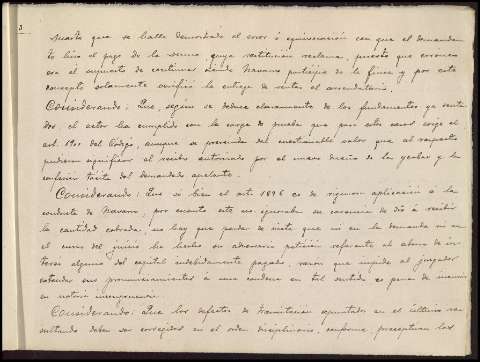 3
puesto que se halla demostrado el error ó equivocacion con que el demandan-
te hizo el pago de la suma, cuya restitucion reclama, puesto que erronea
era el supuesto de continuar siendo Navarro partícipe de la finca y por este
concepto solamente verificó la entrega de rentas el arrendatario.
Considerando: Que, según se deduce claramente de los fundamentos ya senta-
dos, el actor ha cumplido con la carga de prueba que para estos casos exige el
art. 1900 del Código, aunque se prescinda del cuestionable valor que al respecto
pudieran significar el recibo autorizado por el nuevo dueño de la y la
confesion tácita del demandado apelante.
Considerando: Que si bien el art. 1896 es de rigurosa aplicación á la
conducta de Navarro, por cuanto este no ignoraba su carencia de dro á recibir
la cantidad cobrada, no hay que perder de vista que ni en la demanda ni en
el curso del juicio ha hecho su adversario peticion referente al abono de in-
teres alguno del capital indebidamente pagado, razon que impide al juzgador
extender sus pronunciamientos á una condena en tal sentido so pena de incurrir
en notoria incongruencia.
Considerando: Que los defectos de tramitacion apuntados en el último re-
sultando deben ser corregidos en el orden disciplinario, conforme preceptuan los